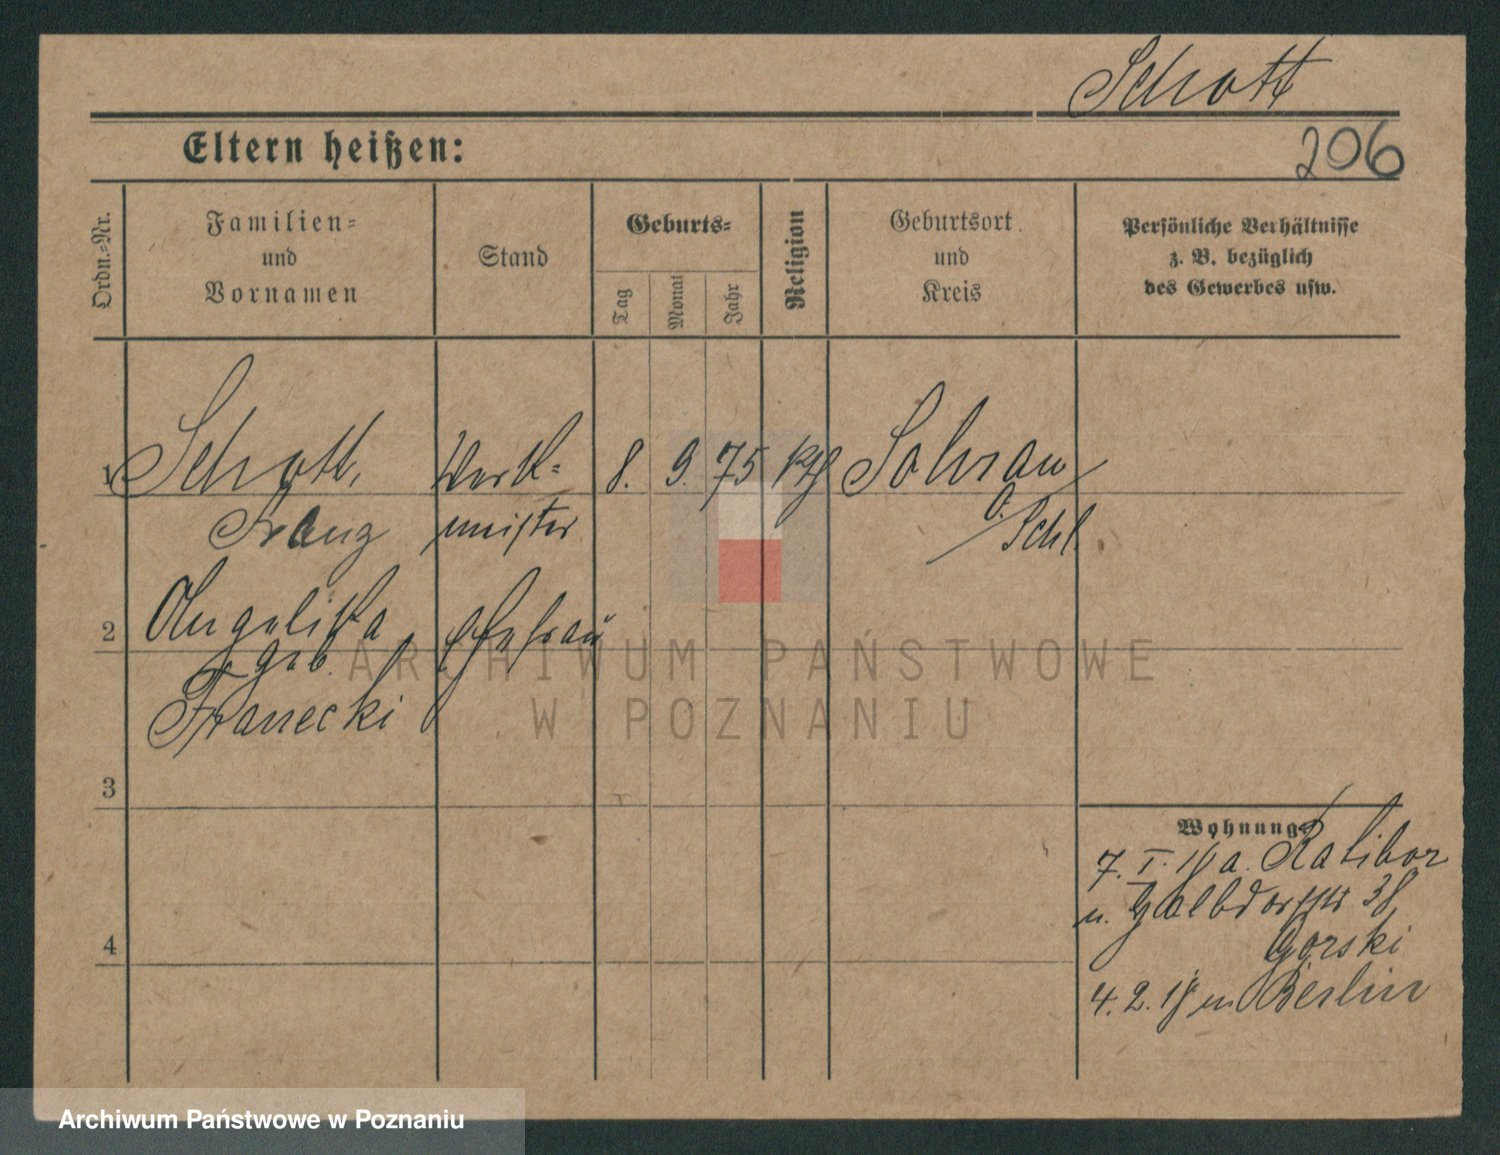 Schott
Eltern heißen:
206
Ordn.-Nr.
Familien=
und
Vornamen
Stand
Geburts=
Tag
Monat
Jahr
Religion
Geburtsort
und
Kreis
Persönliche Verhältnisse
z. B. bezüglich
des Gewerbes usw.
1 Schott, Werk= 8. 9. 75 kth Sohrau
Franz meister O/Schl.
2 Angelika Ehefrau
geb.
Franecki
ARCHIWUM PAŃSTWOWE
W POZNANIU
3
Wohnung
7. I. 18 a. Ratibor
n. 38
Gorski
4
4. 2. 18 n Berlin
Archiwum Państwowe w Poznaniu